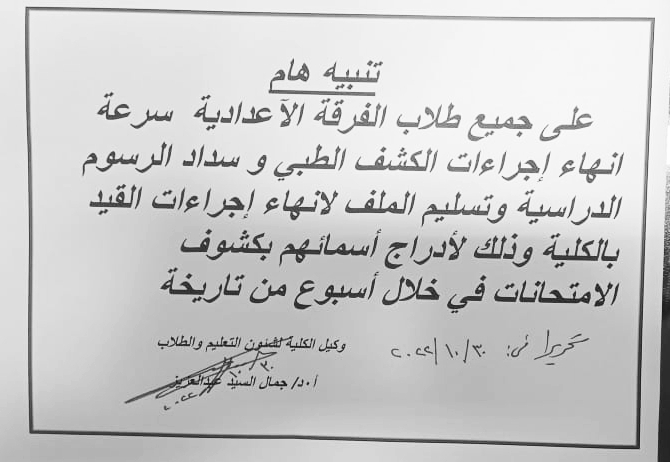 تنبيه هام
على جميع طلاب الفرقة الآعدادية سرعة
انهاء إجراءات الكشف الطبي و سداد الرسوم
الدراسية وتسليم الملف لانهاء إجراءات القيد
بالكلية وذلك لأدراج أسمائهم بكشوف
الامتحانات في خلال أسبوع من تاريخة
تحريرا في: ٢٠٢٢/١٠/٣٠
وكيل الكلية لشئون التعليم والطلاب
٢٠٢٢/١٠/٣٠
أ٠د/ جمال السيد عبدالعزيز